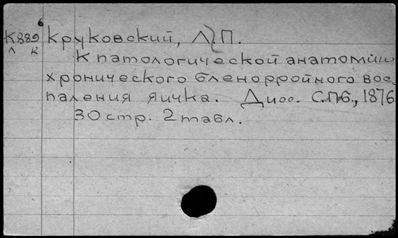 К889 Круковский, Л. П.
л к
К патологической анатомии
хронического бленорройного вос-
паления яичка. Дисс. С.П.б., 1876
30 стр. 2 табл.